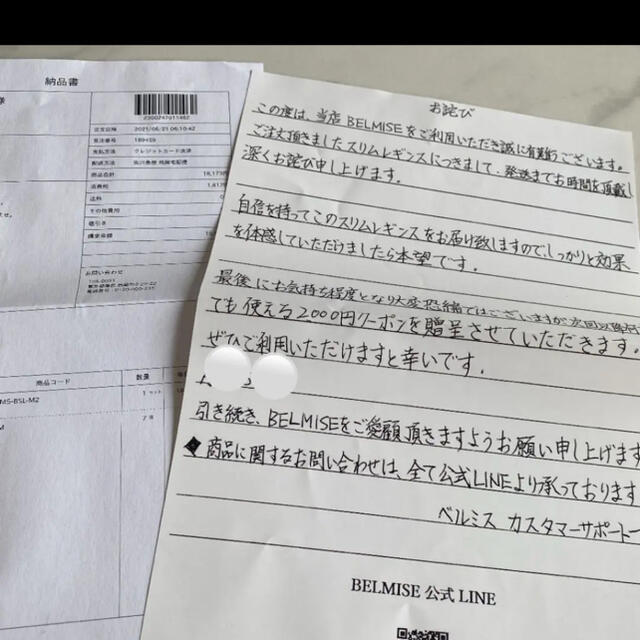 納品書
様
2300247011462
注文日時 2021/06/21 06:10:42
受注番号
支払方法 クレジットカード決済
配送方法
商品合計
消費税
送料 0
その他費用
値引き
請求金額
お問い合わせ
商品コード 数量
MS-BSL-M2 1 セット
M
お詫び
この度は、当店BELMISEをご利用いただき誠に有難うございます。
ご注文頂きましたスリムレギンスにつきまして、発送までお時間を頂戴し
深くお詫び申し上げます。
自信を持ってこのスリムレギンスをお届け致しますので、しっかりと効果
を体感していただけましたら本望です。
最後にお気持ち程度となり大変恐縮ではございますが
でも使える2000円クーポンを贈呈させていただきます。
ぜひご利用いただけますと幸いです。
引き続き、BELMISEをご愛顧頂きますようお願い申し上げます
◆商品に関するお問い合わせは、全て公式LINEより承っております
ベルミス カスタマーサポート一
BELMISE 公式 LINE